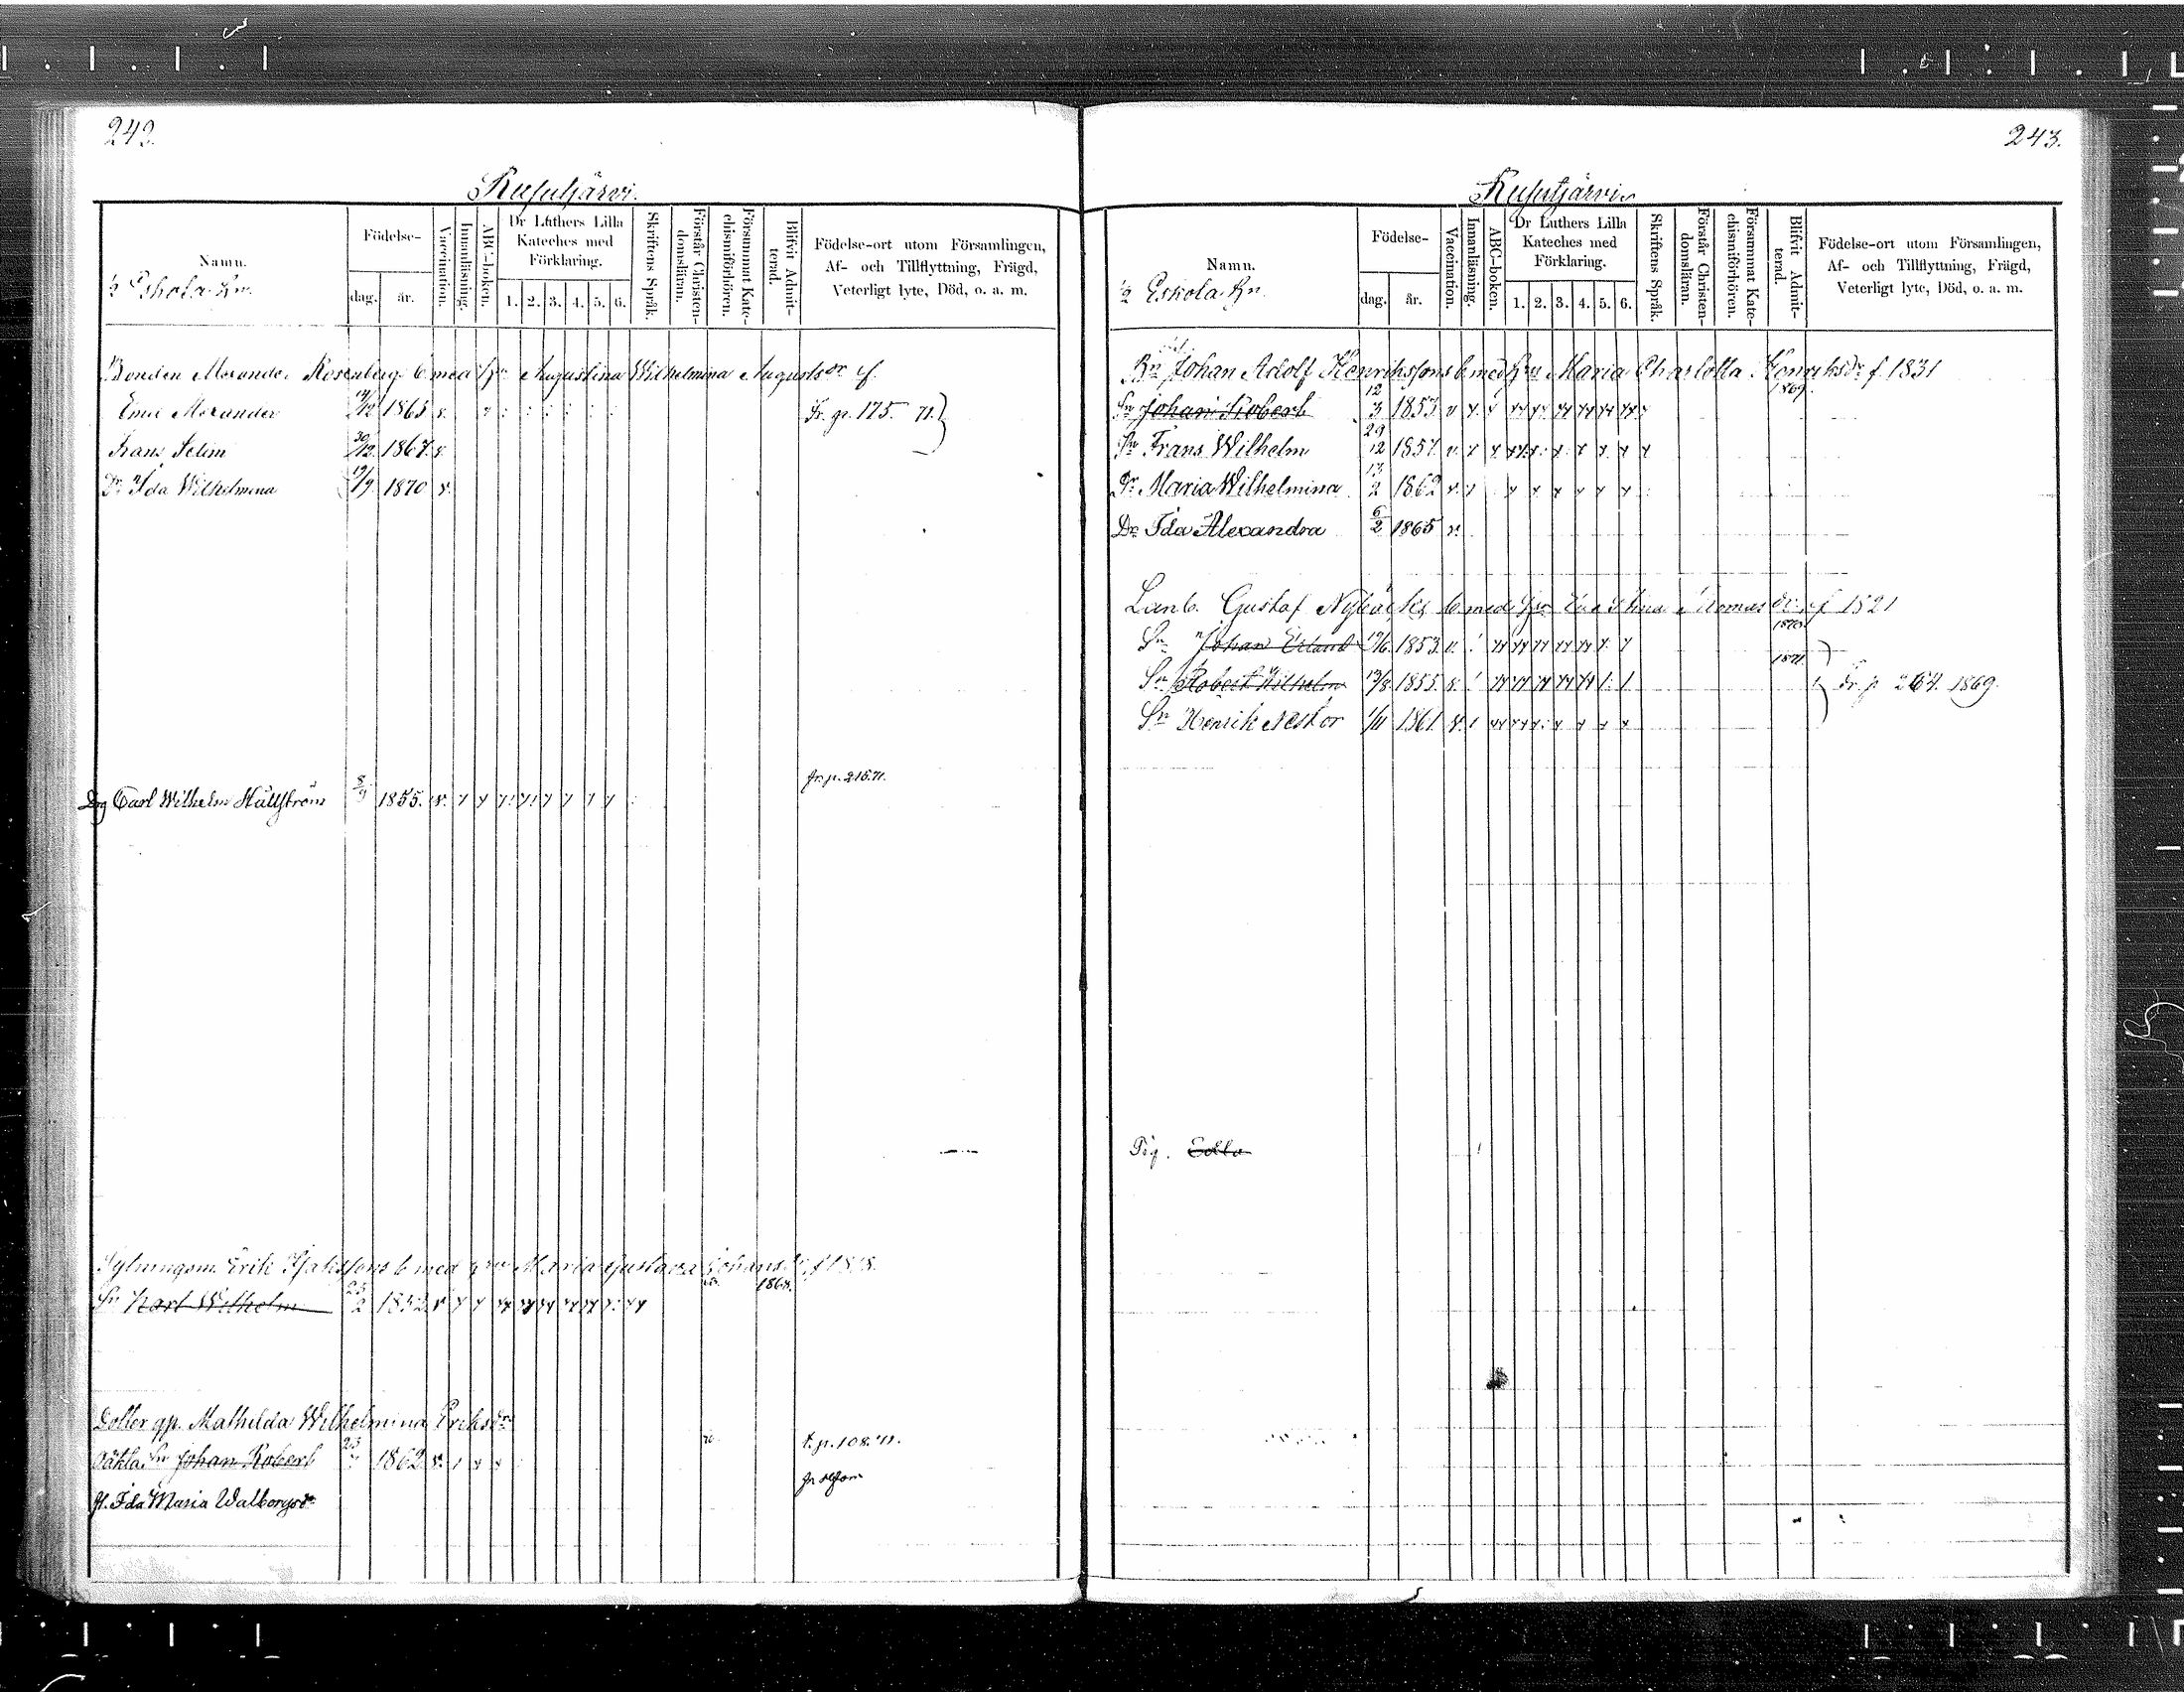 242.
Rusutjärvi.
Namn.
½ Eskola Hn.
Födelse-
dag. år.
Vaccination.
Innanläsning.
ABC-boken.
Dr Luthers Lilla Kateches med Förklaring.
1. 2. 3. 4. 5. 6.
Skriftens Språk.
Förstår Christen-domsläran.
Försummat Kate-chismiförhören.
Blifvit Admit-terad.
Födelse-ort utom Församlingen, Af- och Tillflyttning, Frägd, Veterligt lyte, Död, o. a. m.
Bonden Morander Rosenberg b med hu Augustina Wilhelmina Augustsdr f.
Emil Morander 1865 v. Fr. p. 175 71.
Frans Selim 30/12 1867 v.
Dr Ida Wilhelmina 19/9 1870 v.
Drg Carl Wilhelm Hällström 8/9 1855. v. fr. p. 216.71.
Sytningsm. Erik Isakssons b med hu Maria Gustava Johansdr f 1808.
Sn Karl Wilhelm 23/2 1852 v 1868.
Dotter op. Mathilda Wilhelmina Eriksdr
Oäkta Sn Johan Robert 23/7 1862 v. t. p. 108. 71.
fl. Ida Maria Walborgsdr
243.
Rusutjärvi.
Namn.
½ Eskola. Hn.
Födelse-
dag. år.
Vaccination.
Innanläsning.
ABC-boken.
Dr Luthers Lilla Kateches med Förklaring.
1. 2. 3. 4. 5. 6.
Skriftens Språk.
Förstår Christen-domsläran.
Försummat Kate-chismiförhören.
Blifvit Admit-terad.
Födelse-ort utom Församlingen, Af- och Tillflyttning, Frägd, Veterligt lyte, Död, o. a. m.
Bn Johan Adolf Henrikssons b. med hu Maria Charlotta Henriksdr f. 1831
Sn Johan Robert 12/3 1853 v 1869.
Sn Frans Wilhelm 29/12 1857 v.
Dr Maria Wilhelmina 13/2 1862 v.
Dr Ida Alexandra 6/2 1865 v.
Lanb. Gustaf Nybäcks b med hu Eva Stina Thomasdr f 1821
Sn Johan Erland 19/6. 1853. v. 1870.
Sn Robert Wilhelm 13/8 1855. v. 1871. Fr. p 264. 1869.
Sn Henrik Nestor 1/11 1861. v.
Pig. Edla